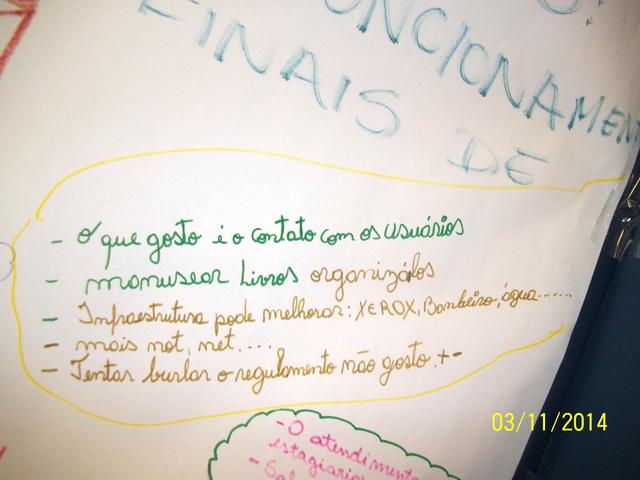 FUNCIONAMEN
FINAIS DE
- O que gosto é o contato com os usuários
- manusear livros organizálos
- Infraestrutura pode melhorar: XEROX, Banheiro, água......
- mais not, net....
- Tentar burlar o regulamento não gosto. +-
- O atendimento
estagiario
- Sal
03/11/2014